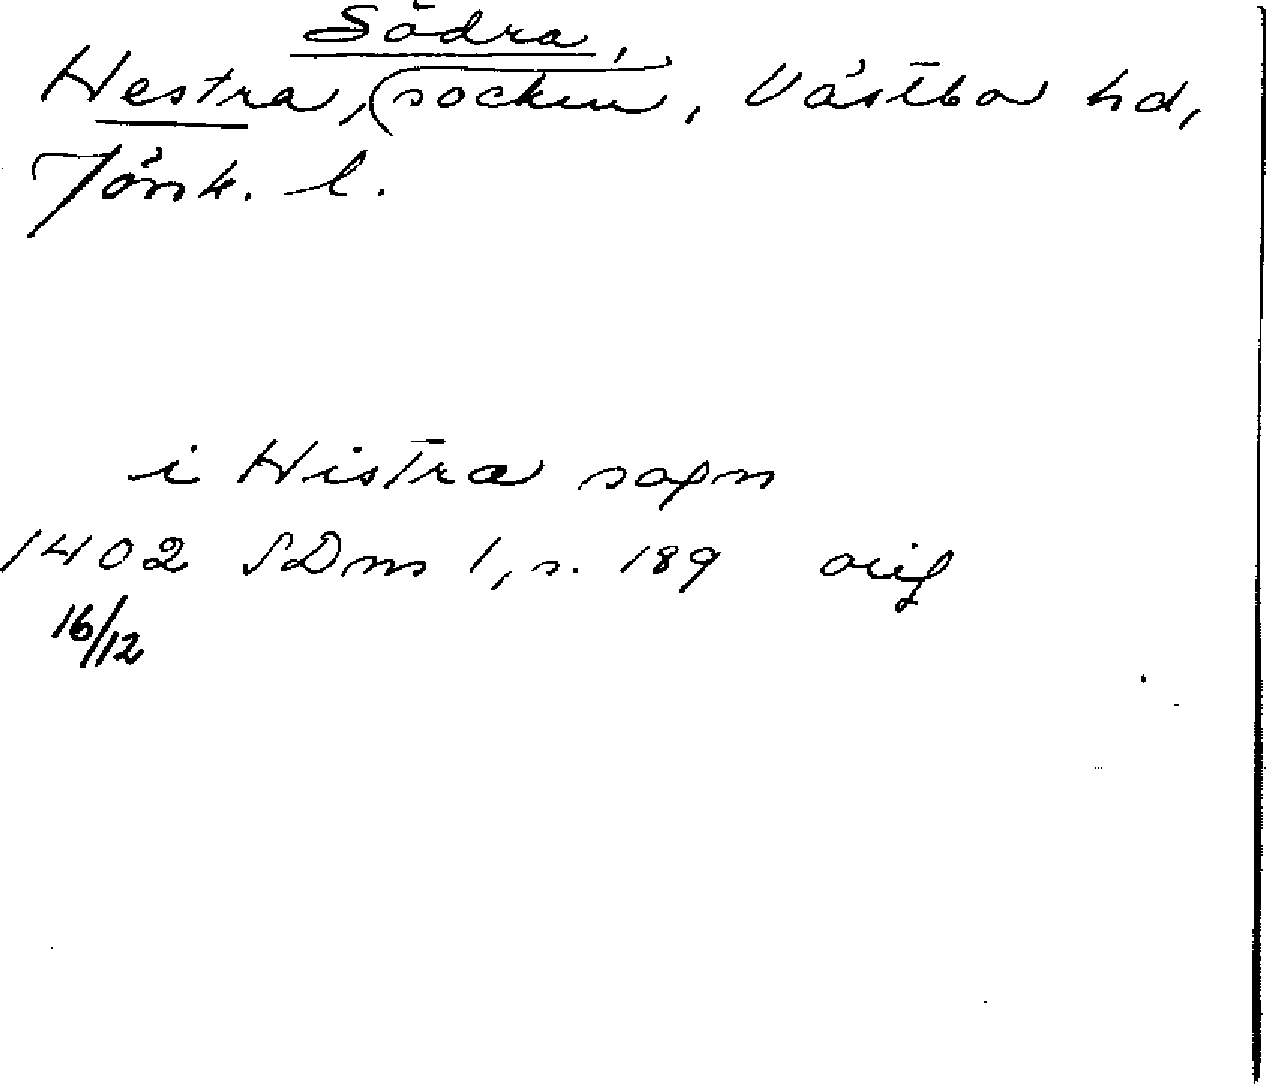 Södra,
Hestra, socken, Västbo hd,
Jönk. l.
i Histra sogn
1402 SDns 1, s. 189 orig
16/12